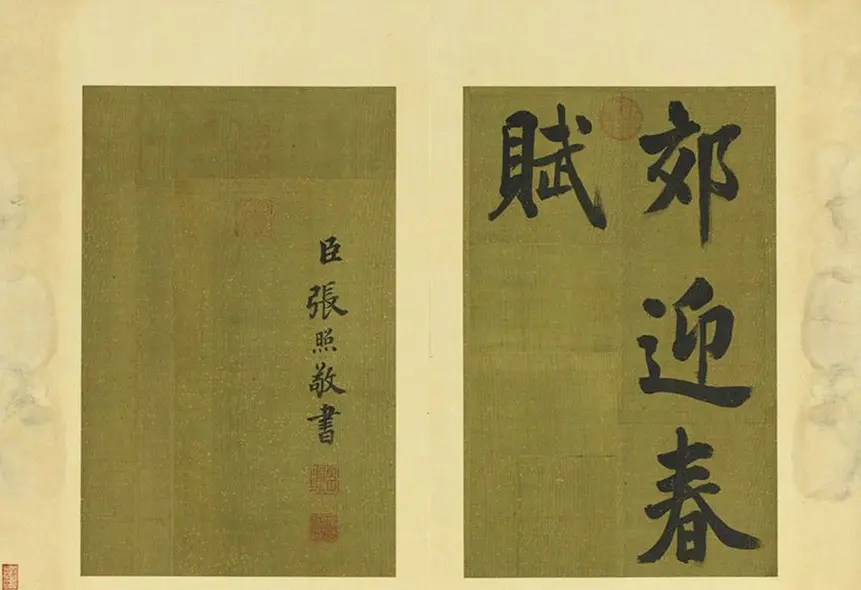 郊迎春
賦
臣張照敬書